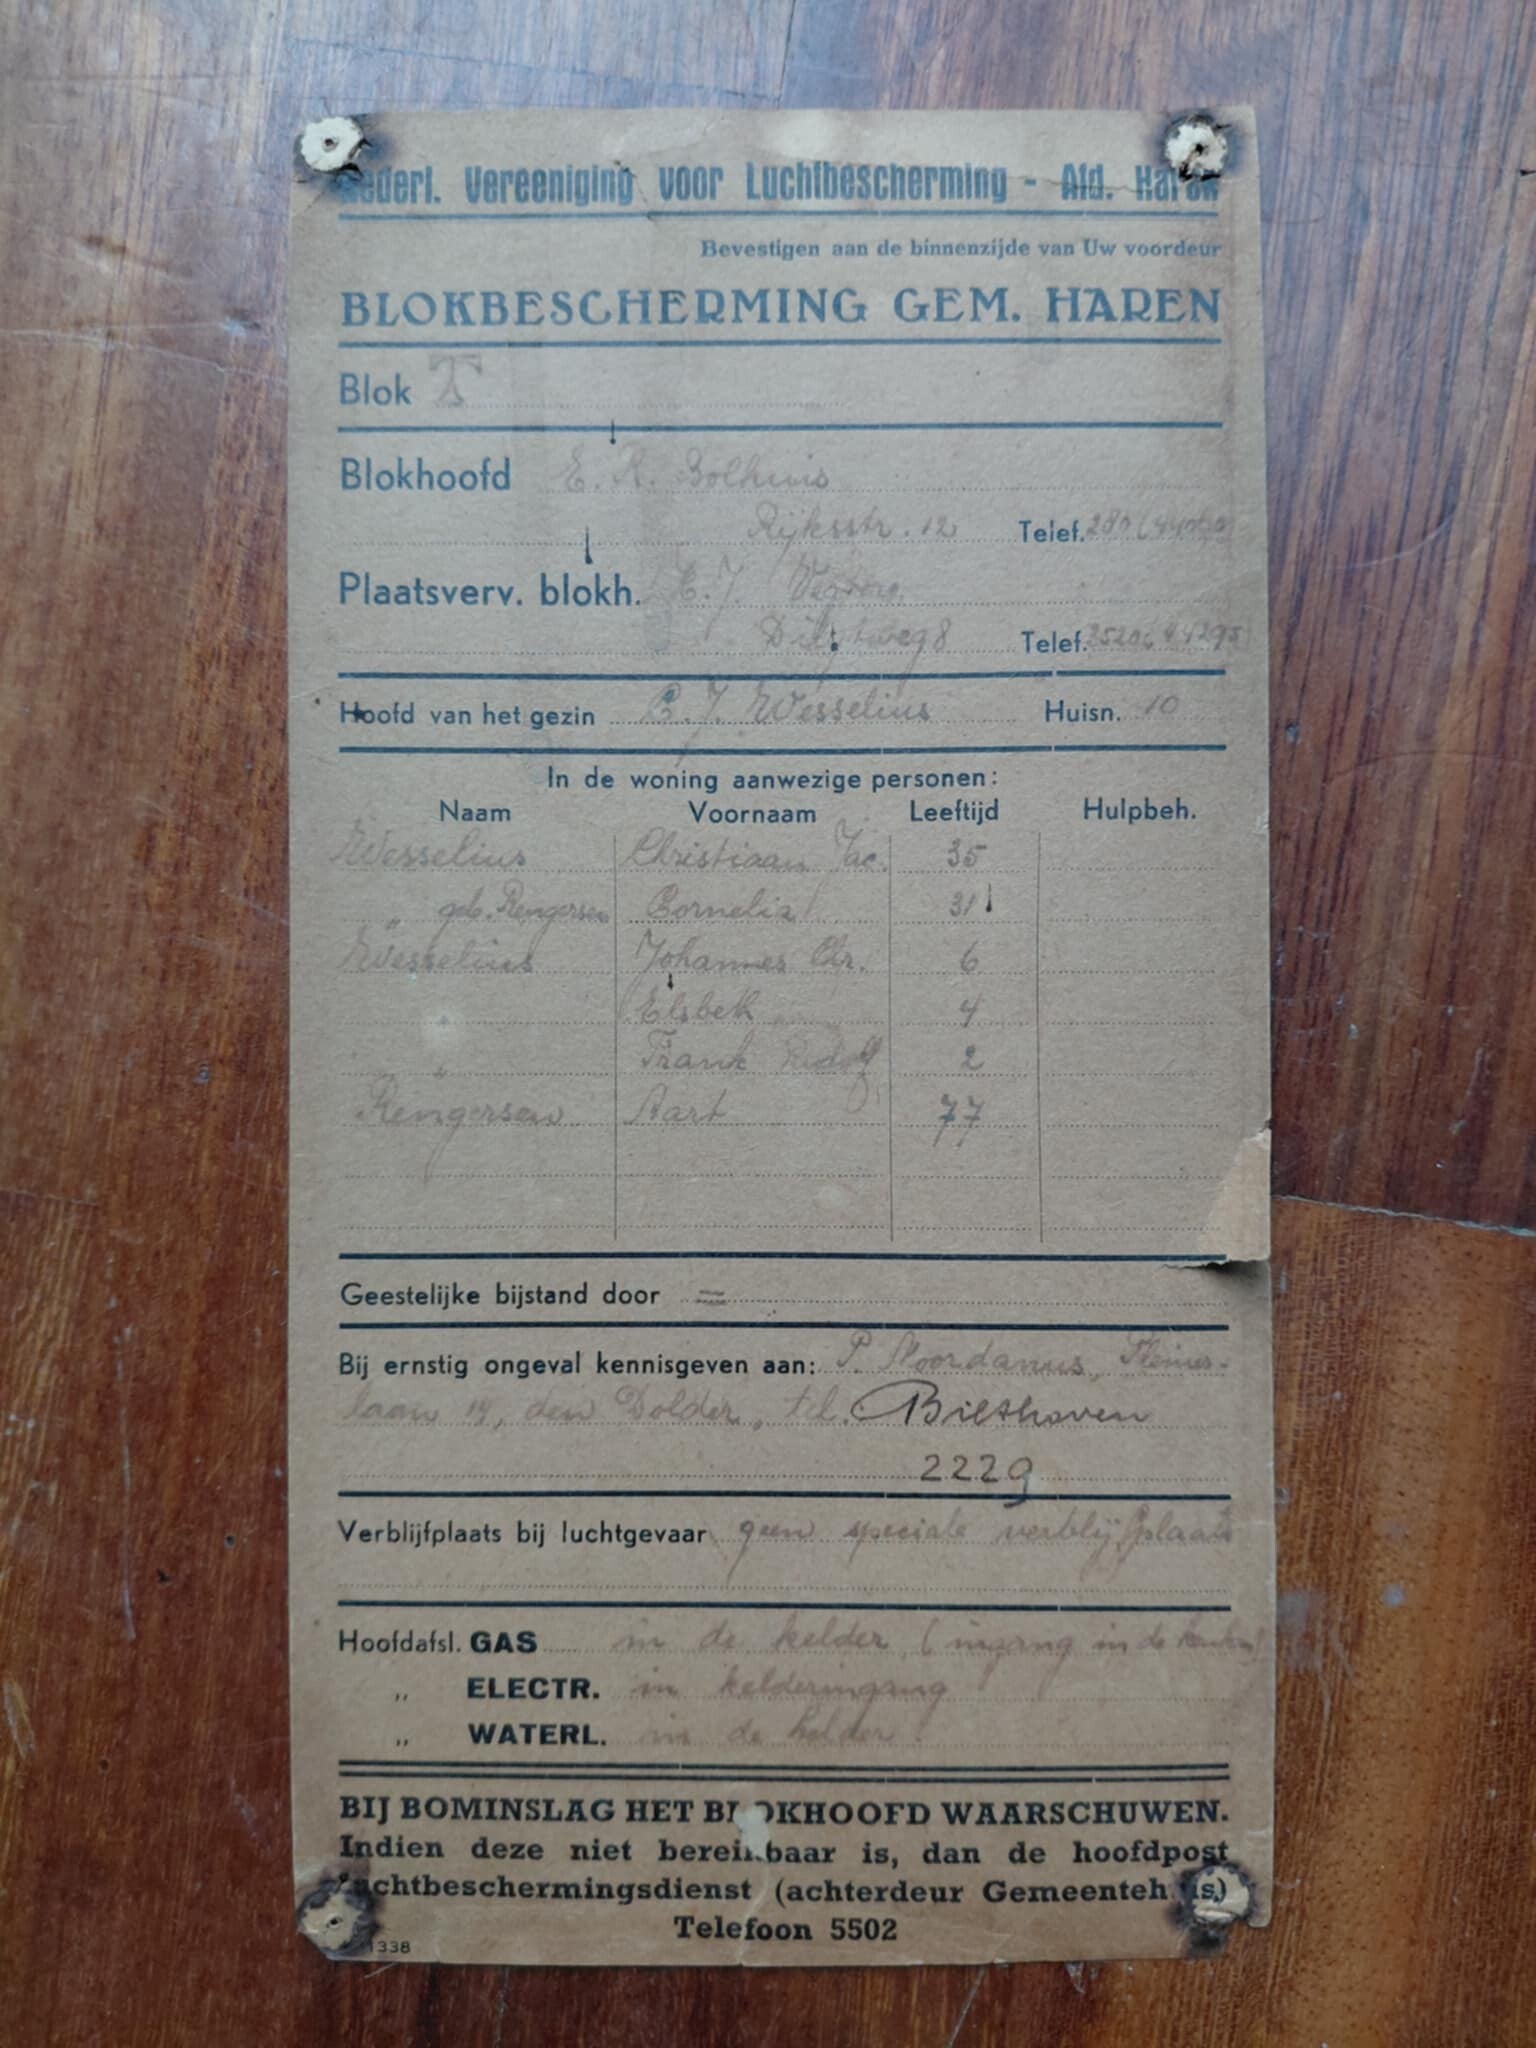 Nederl. Vereeniging voor Luchtbescherming - Afd. Haren
Bevestigen aan de binnenzijde van Uw voordeur
BLOKBESCHERMING GEM. HAREN
Blok T
Blokhoofd E. R. Bolhuis
Rijksstr. 12 Telef.
Plaatsverv. blokh.
Dilgtweg 8 Telef.
Hoofd van het gezin C. J. Wesselius Huisn. 10
In de woning aanwezige personen:
Naam Voornaam Leeftijd Hulpbeh.
Wesselius Christiaan Jac. 35
„ geb. Rengersen Cornelia 31
Wesselius Johannes Chr. 6
„ Elsbeth 4
„ Frank Rudolf 2
Rengersen Aart 77
Geestelijke bijstand door =
Bij ernstig ongeval kennisgeven aan: P. Noordanus,
laan 14, den Dolder, tel. Bilthoven
2229
Verblijfplaats bij luchtgevaar geen speciale verblijfplaats
Hoofdafsl. GAS in de kelder (ingang in de keuken)
„ ELECTR. in kelderingang
„ WATERL. in de kelder.
BIJ BOMINSLAG HET BLOKHOOFD WAARSCHUWEN.
Indien deze niet bereikbaar is, dan de hoofdpost
Luchtbeschermingsdienst (achterdeur Gemeentehuis)
Telefoon 5502
1338